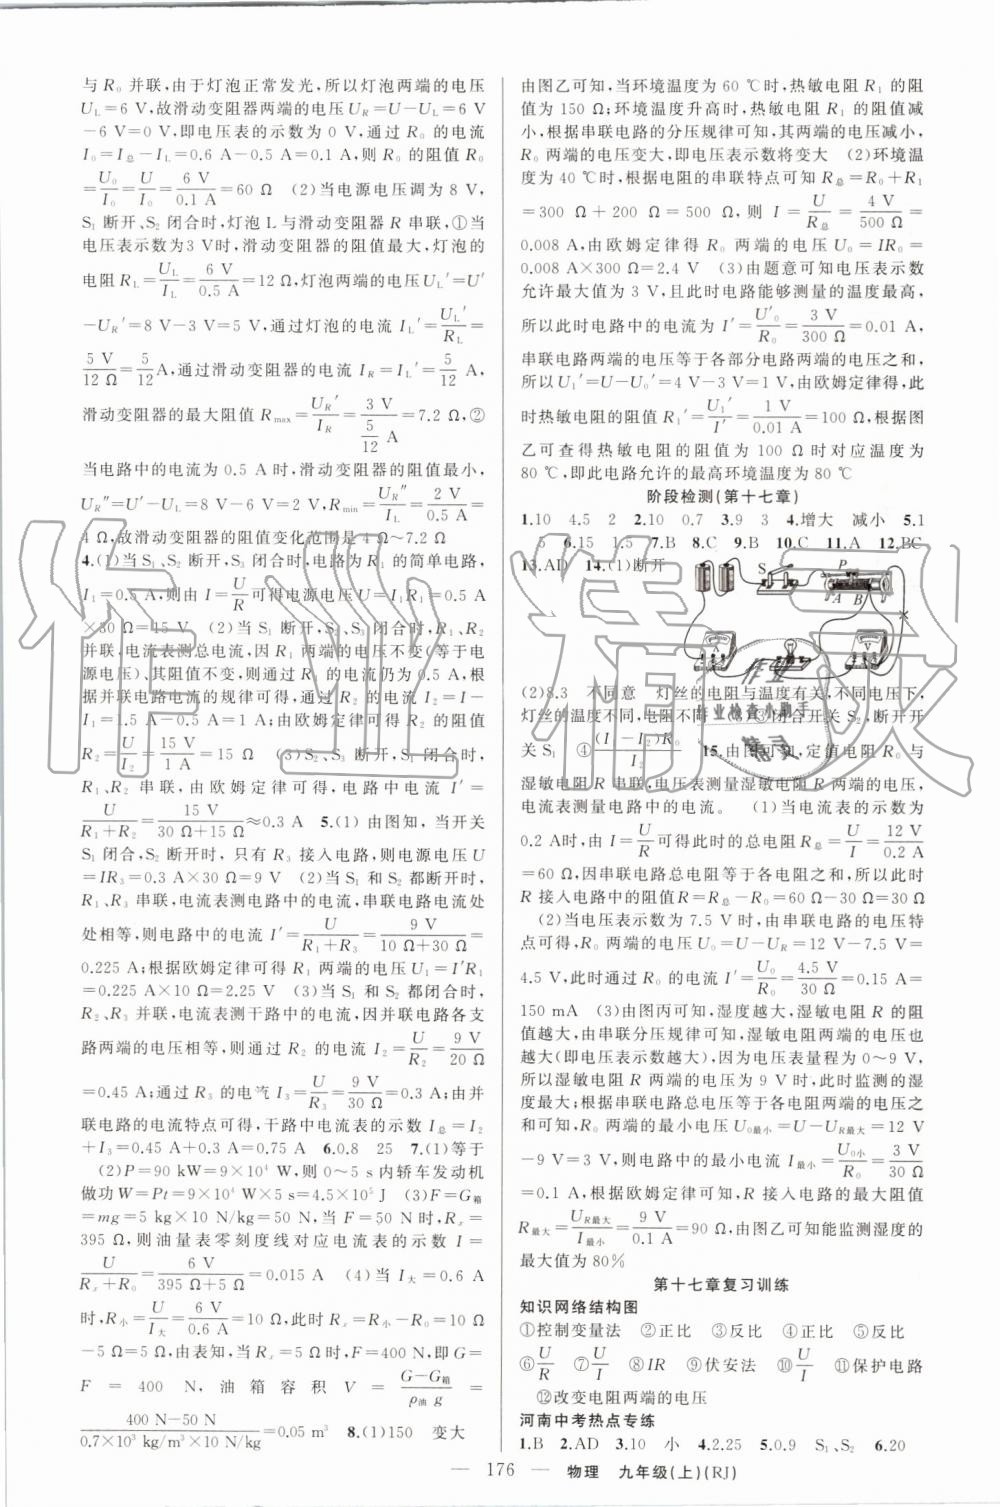 与 R₀ 并联,由于灯泡正常发光,所以灯泡两端的电压
U_L=6 V,故滑动变阻器两端的电压 U_R=U-U_L=6 V
-6 V=0 V,即电压表的示数为 0 V,通过 R₀ 的电流
I₀=I_总-I_L=0.6 A-0.5 A=0.1 A,则 R₀ 的阻值 R₀
=U₀/I₀=U/I₀=6 V/0.1 A=60 Ω (2)当电源电压调为 8 V,
S₁ 断开、S₂ 闭合时,灯泡 L 与滑动变阻器 R 串联,①当
电压表示数为 3 V 时,滑动变阻器的阻值最大,灯泡的
电阻 R_L=U_L/I_L=6 V/0.5 A=12 Ω,灯泡两端的电压 U_L′=U′
-U_R′=8 V-3 V=5 V,通过灯泡的电流 I_L′=U_L′/R_L=
5 V/12 Ω=5/12 A,通过滑动变阻器的电流 I_R=I_L′=5/12 A,
滑动变阻器的最大阻值 R_max=U_R′/I_R=3 V/(5/12 A)=7.2 Ω,②
当电路中的电流为 0.5 A 时,滑动变阻器的阻值最小,
U_R″=U′-U_L=8 V-6 V=2 V,R_min=U_R″/I_L=2 V/0.5 A=
4 Ω,故滑动变阻器的阻值变化范围是 4 Ω~7.2 Ω
4.(1)当 S₁、S₂ 断开、S₃ 闭合时,电路为 R₁ 的简单电路,
I₁=0.5 A,则由 I=U/R可得电源电压 U=I₁R₁=0.5 A
×30 Ω=15 V (2)当 S₁ 断开,S₂、S₃ 闭合时,R₁、R₂
并联,电流表测总电流,因 R₁ 两端的电压不变(等于电
源电压),其阻值不变,则通过 R₁ 的电流仍为 0.5 A,根
据并联电路电流的规律可得,通过 R₂ 的电流 I₂=I-
I₁=1.5 A-0.5 A=1 A,由欧姆定律可得 R₂ 的阻值
R₂=U/I₂=15 V/1 A=15 Ω (3)S₂、S₃ 断开,S₁ 闭合时,
R₁、R₂ 串联,由欧姆定律可得,电路中电流 I′=
U/(R₁+R₂)=15 V/(30 Ω+15 Ω)≈0.3 A 5.(1) 由图知,当开关
S₁ 闭合,S₂ 断开时,只有 R₃ 接入电路,则电源电压 U
=IR₃=0.3 A×30 Ω=9 V (2)当 S₁ 和 S₂ 都断开时,
R₁、R₃ 串联,电流表测电路中的电流,串联电路电流处
处相等,则电路中的电流 I′=U/(R₁+R₃)=9 V/(10 Ω+30 Ω)=
0.225 A;根据欧姆定律可得 R₁ 两端的电压 U₁=I′R₁
=0.225 A×10 Ω=2.25 V (3)当 S₁ 和 S₂ 都闭合时,
R₂、R₃ 并联,电流表测干路中的电流,因并联电路各支
路两端的电压相等,则通过 R₂ 的电流 I₂=U/R₂=9 V/20 Ω
=0.45 A;通过 R₃ 的电流 I₃=U/R₃=9 V/30 Ω=0.3 A;由并
联电路的电流特点可得,干路中电流表的示数 I_总=I₂
+I₃=0.45 A+0.3 A=0.75 A 6.0.8 25 7.(1)等于
(2)P=90 kW=9×10⁴ W,则 0~5 s 内轿车发动机
做功 W=Pt=9×10⁴ W×5 s=4.5×10⁵ J (3)F=G_箱
=mg=5 kg×10 N/kg=50 N,当 F=50 N 时,Rₓ=
395 Ω,则油量表零刻度线对应电流表的示数 I=
U/(Rₓ+R₀)=6 V/(395 Ω+5 Ω)=0.015 A (4)当 I_大=0.6 A
时,R_小=U/I_大=6 V/0.6 A=10 Ω,此时 Rₓ=R_小-R₀=10 Ω
-5 Ω=5 Ω,由表知,当 Rₓ=5 Ω 时,F=400 N,即 G=
F=400 N,油箱容积 V=(G-G_箱)/(ρ_油 g)=
(400 N-50 N)/(0.7×10³ kg/m³×10 N/kg)=0.05 m³ 8.(1)150 变大
由图乙可知,当环境温度为 60 ℃时,热敏电阻 R₁ 的阻
值为 150 Ω;环境温度升高时,热敏电阻 R₁ 的阻值减
小,根据串联电路的分压规律可知,其两端的电压减小,
R₀ 两端的电压变大,即电压表示数将变大 (2)环境温
度为 40 ℃时,根据电阻的串联特点可知 R_总=R₀+R₁
=300 Ω+200 Ω=500 Ω,则 I=U/R_总=4 V/500 Ω=
0.008 A,由欧姆定律得 R₀ 两端的电压 U₀=IR₀=
0.008 A×300 Ω=2.4 V (3)由题意可知电压表示数
允许最大值为 3 V,且此时电路能够测量的温度最高,
所以此时电路中的电流为 I′=U′₀/R₀=3 V/300 Ω=0.01 A,
串联电路两端的电压等于各部分电路两端的电压之和,
所以 U₁′=U-U₀′=4 V-3 V=1 V,由欧姆定律得,此
时热敏电阻的阻值 R₁′=U₁′/I′=1 V/0.01 A=100 Ω,根据图
乙可查得热敏电阻的阻值为 100 Ω 时对应温度为
80 ℃,即此电路允许的最高环境温度为 80 ℃
阶段检测(第十七章)
1.10 4.5 2 2.10 0.7 3.9 3 4.增大 减小 5.1
5 6.15 1.5 7.B 8.C 9.B 10.C 11.A 12.BC
13.AD 14.(1)断开
S P A B
A V
(2)8.3 不同意 灯丝的电阻与温度有关,不同电压下,
灯丝的温度不同,电阻不同 (3)③闭合开关 S₂,断开开
关 S₁ ④(I-I₂)R₀/ 15.由图可知,定值电阻 R₀ 与
湿敏电阻 R 串联,电压表测量湿敏电阻 R 两端的电压,
电流表测量电路中的电流。 (1)当电流表的示数为
0.2 A 时,由 I=U/R可得此时的总电阻 R_总=U/I=12 V/0.2 A
=60 Ω,因串联电路总电阻等于各电阻之和,所以此时
R 接入电路中的阻值 R=R_总-R₀=60 Ω-30 Ω=30 Ω
(2)当电压表示数为 7.5 V 时,由串联电路的电压特
点可得,R₀ 两端的电压 U₀=U-U_R=12 V-7.5 V=
4.5 V,此时通过 R₀ 的电流 I′=U₀/R₀=4.5 V/30 Ω=0.15 A=
150 mA (3)由图丙可知,湿度越大,湿敏电阻 R 的阻
值越大,由串联分压规律可知,湿敏电阻两端的电压也
越大(即电压表示数越大),因为电压表量程为 0~9 V,
所以湿敏电阻 R 两端的电压为 9 V 时,此时监测的湿
度最大;根据串联电路总电压等于各电阻两端的电压之
和可知,R₀ 两端的最小电压 U₀最小=U-U_R最大=12 V
-9 V=3 V,则电路中的最小电流 I_最小=U₀小/R₀=3 V/30 Ω
=0.1 A,根据欧姆定律可知,R 接入电路的最大阻值
R_最大=U_R最大/I_最小=9 V/0.1 A=90 Ω,由图乙可知能监测湿度的
最大值为 80%
第十七章复习训练
知识网络结构图
①控制变量法 ②正比 ③反比 ④正比 ⑤反比
⑥U/R ⑦U/I ⑧IR ⑨伏安法 ⑩U/I ⑪保护电路
⑫改变电阻两端的电压
河南中考热点专练
1.B 2.AD 3.10 小 4.2.25 5.0.9 S₁、S₂ 6.20
— 176 — 物理 九年级(上)(RJ)
作业精灵
作业
作业检查小助手
精灵